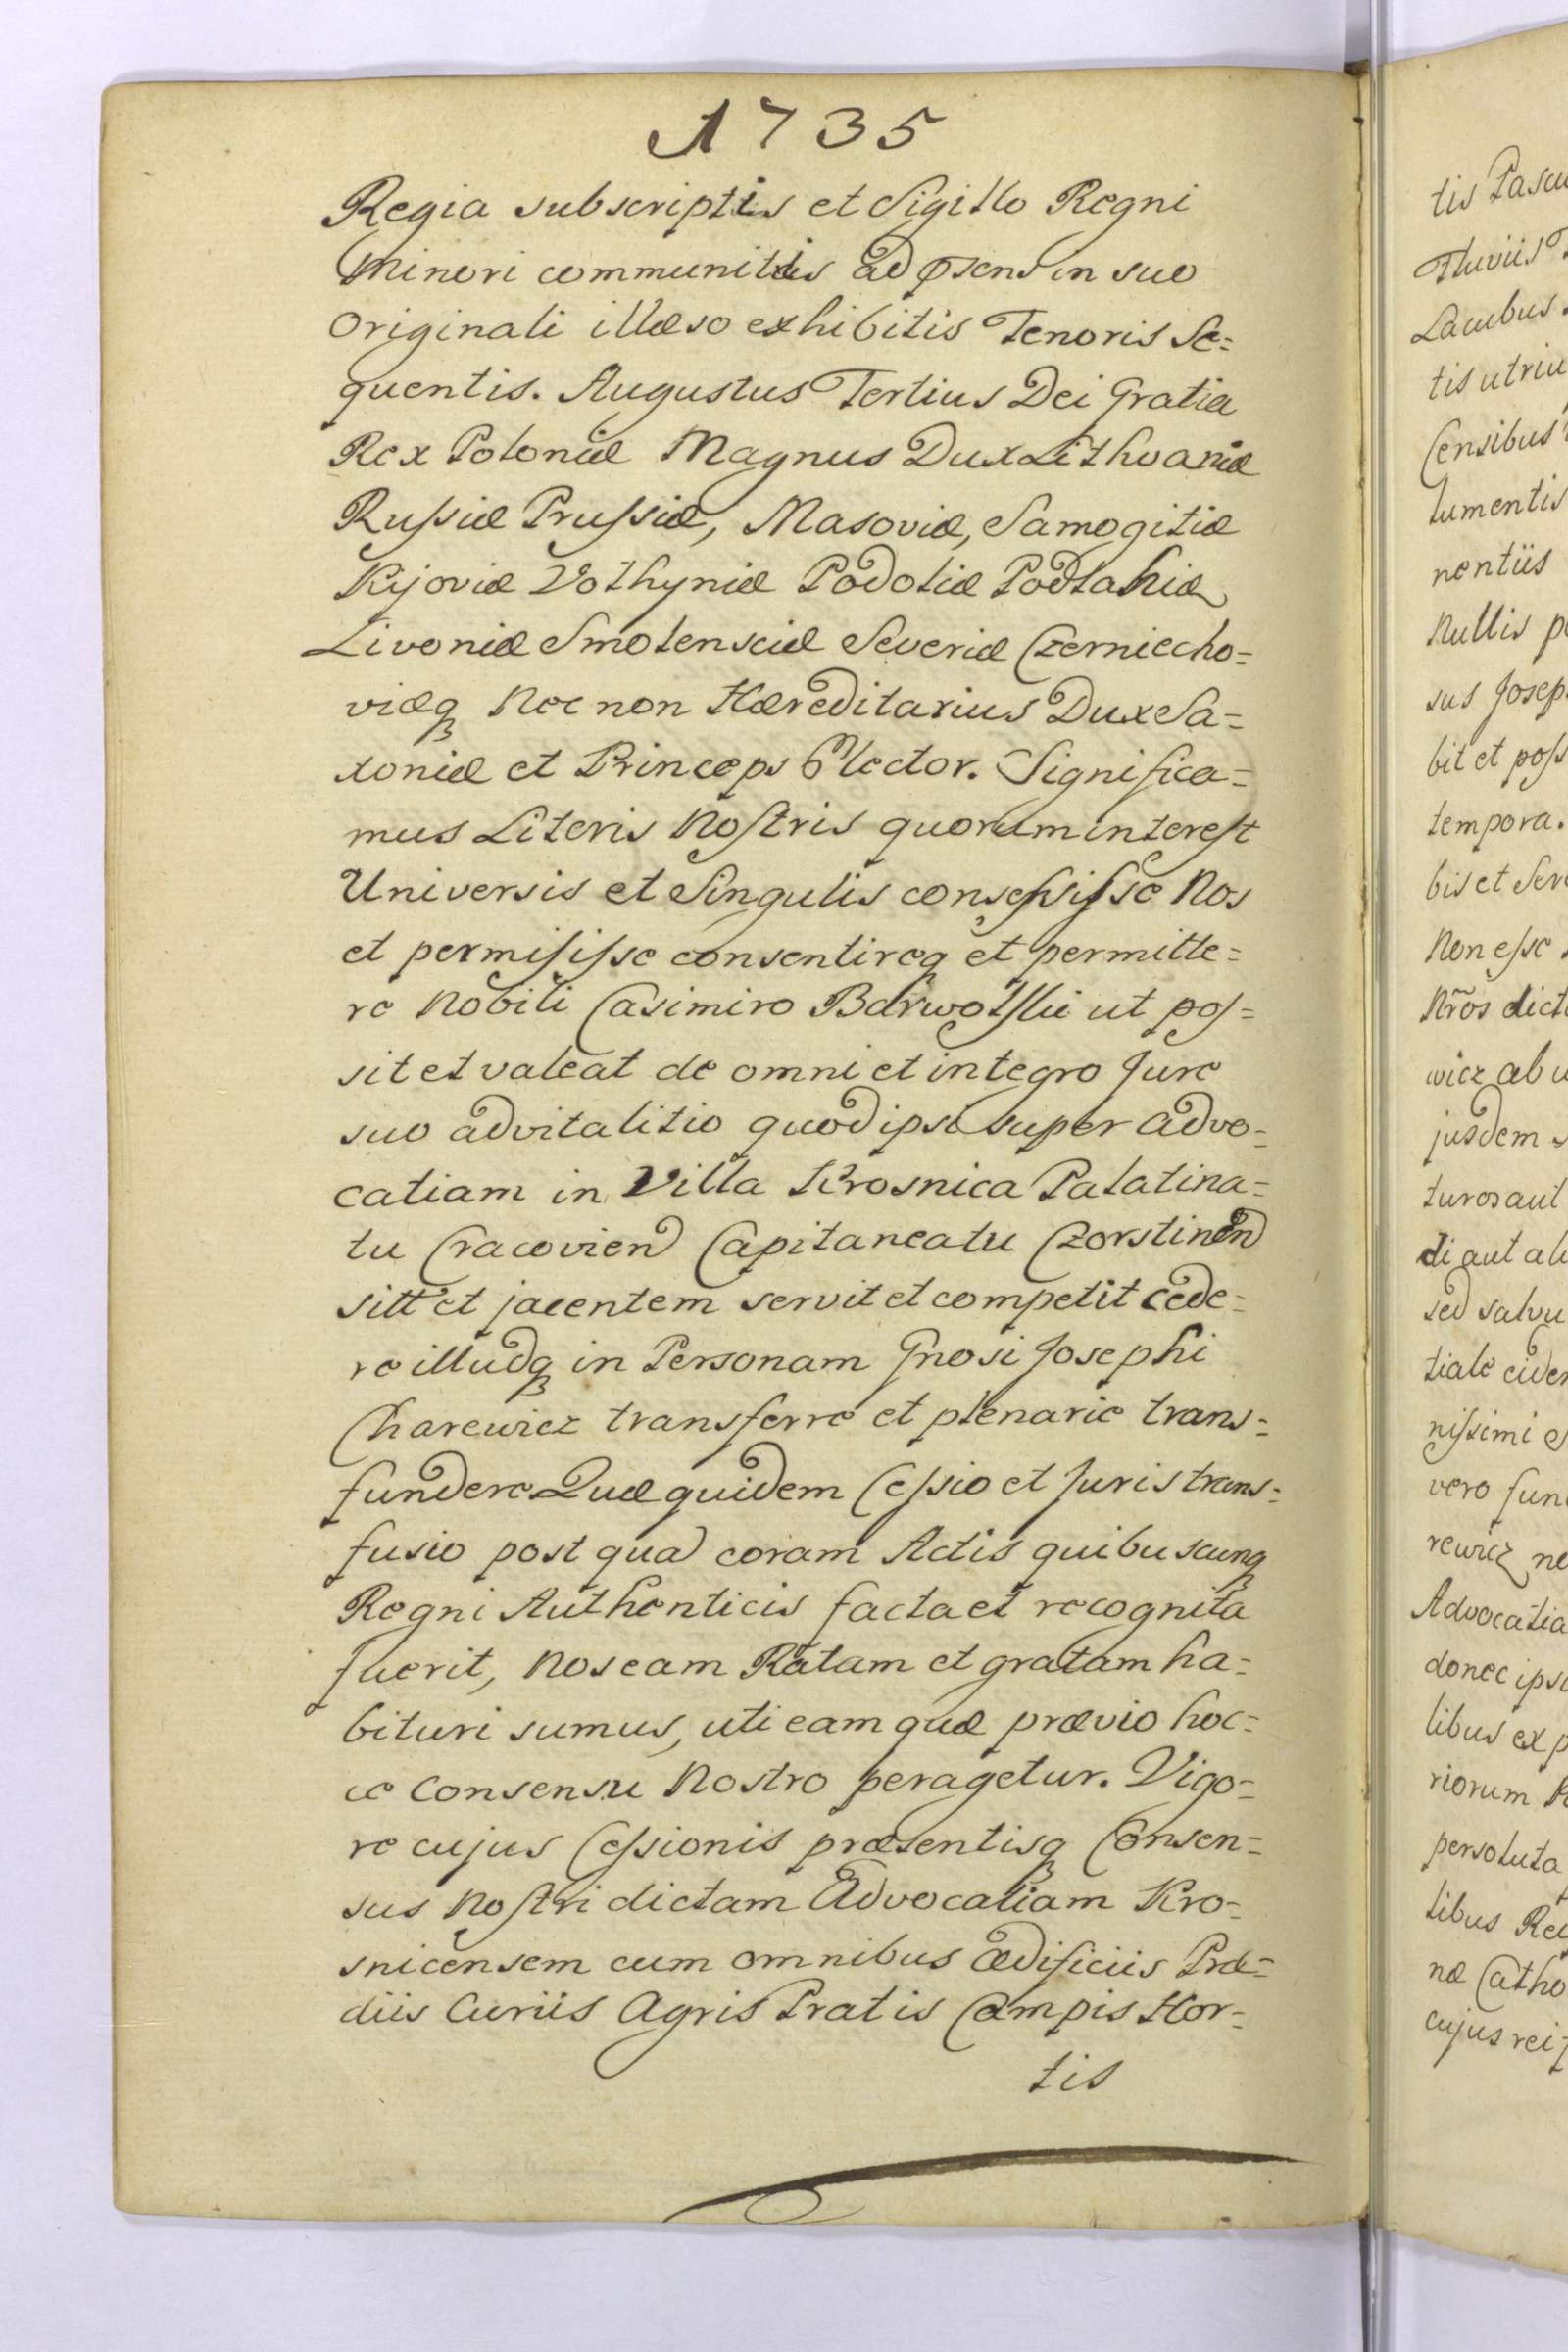 1735
Regia subscriptis et Sigillo Regni
Minori communitis ad psens in suo
Originali illæso exhibitis Tenoris Se=
quentis. Augustus Tertius Dei Gratia
Rex Poloniæ Magnus Dux Lithvaniæ
Russiæ Prussiæ, Masoviæ, Samogitiæ
Kijoviæ Volhyniæ Podoliæ Podlahiæ
Livoniæ Smolensciæ Severiæ Czerniecho=
viæq Nec non Hæreditarius Dux Sa=
xoniæ et Princeps Elector. Significa=
mus Literis Nostris quorum interest
Universis et Singulis consensisse Nos
et permisisse consentireq et permitte=
re Nobili Casimiro Barwolski ut pos=
sit et valeat de omni et integro Jure
suo advitalitio quod ipsi super advo=
catiam in Villa Krosnica Palatina=
tu Cracovien Capitaneatu Czorstinen
sitt et jacentem servit et competit cede=
re illudq in Personam Gnosi Josephi
Charewicz transferre et plenarie trans=
fundere Quæ quidem Cessio et Juris trans=
fusio post qua coram Actis quibuscunq
Regni Authenticis facta et recognita
fuerit, nos eam Ratam et gratam ha=
bituri sumus, uti eam quæ prævio hoc=
ce Consensu Nostro peragetur. Vigo=
re cujus Cessionis præsentisq Consen=
sus Nostri dictam Advocatiam Kro=
snicensem cum omnibus ædificiis Præ=
diis Curiis Agris Pratis Campis Hor=
tis
tis Pascu
Fluviis
Lacubus
tis utriu
Censibus
lumentis
nentiis
Nullis p
sus Josep
bit et poss
tempora.
bis et Ser
Non esse
Nrõs dict
wicz ab u
jusdem
turos aut
di aut al
sed salvu
tiale eide
nissimi
vero fun
rewicz ne
Advocatia
donec ips
libus ex p
riorum
persoluta
tibus Re
næ Catho
cujus rei